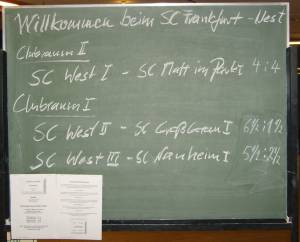 Willkommen beim SC Frankfurt-West
Clubraum II
SC West I - SC Matt im Park I 4:4
Clubraum I
SC West II - SC Groß Gerau I 6½:1½
SC West III - SC Arnheim I 5½:2½